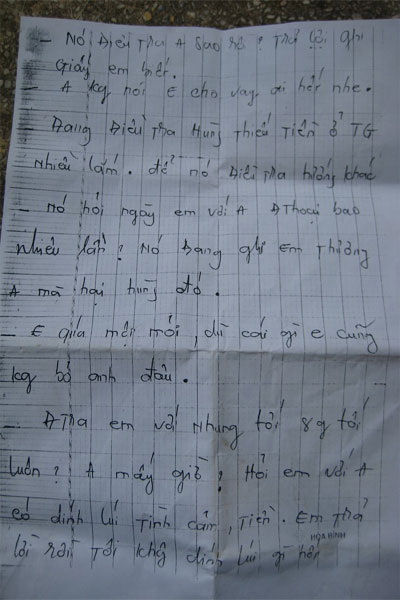 - Nó Điều Tra A sao rồi? Trả lời ghi
giấy em biết.
- A kg nói E cho vay ai hết nhe.
- Đang Điều Tra Hùng Thiếu Tiền ở TG
Nhiều lắm. để nó Điều Tra hướng khác
- Nó hỏi ngày em với A ĐThoại bao
nhiêu lần? Nó Đang ghi Em Thương
A mà hại Hùng đó.
- E quá mệt mỏi, dù cái gì e cũng
kg bỏ anh đâu.
- ĐTra em với Nhung tối 8g tới
luôn? A mấy giờ? Hỏi em với A
có dính líu Tình cảm, Tiền. Em Trả
HÒA BÌNH
lời rồi Tới khg dính líu gì hết